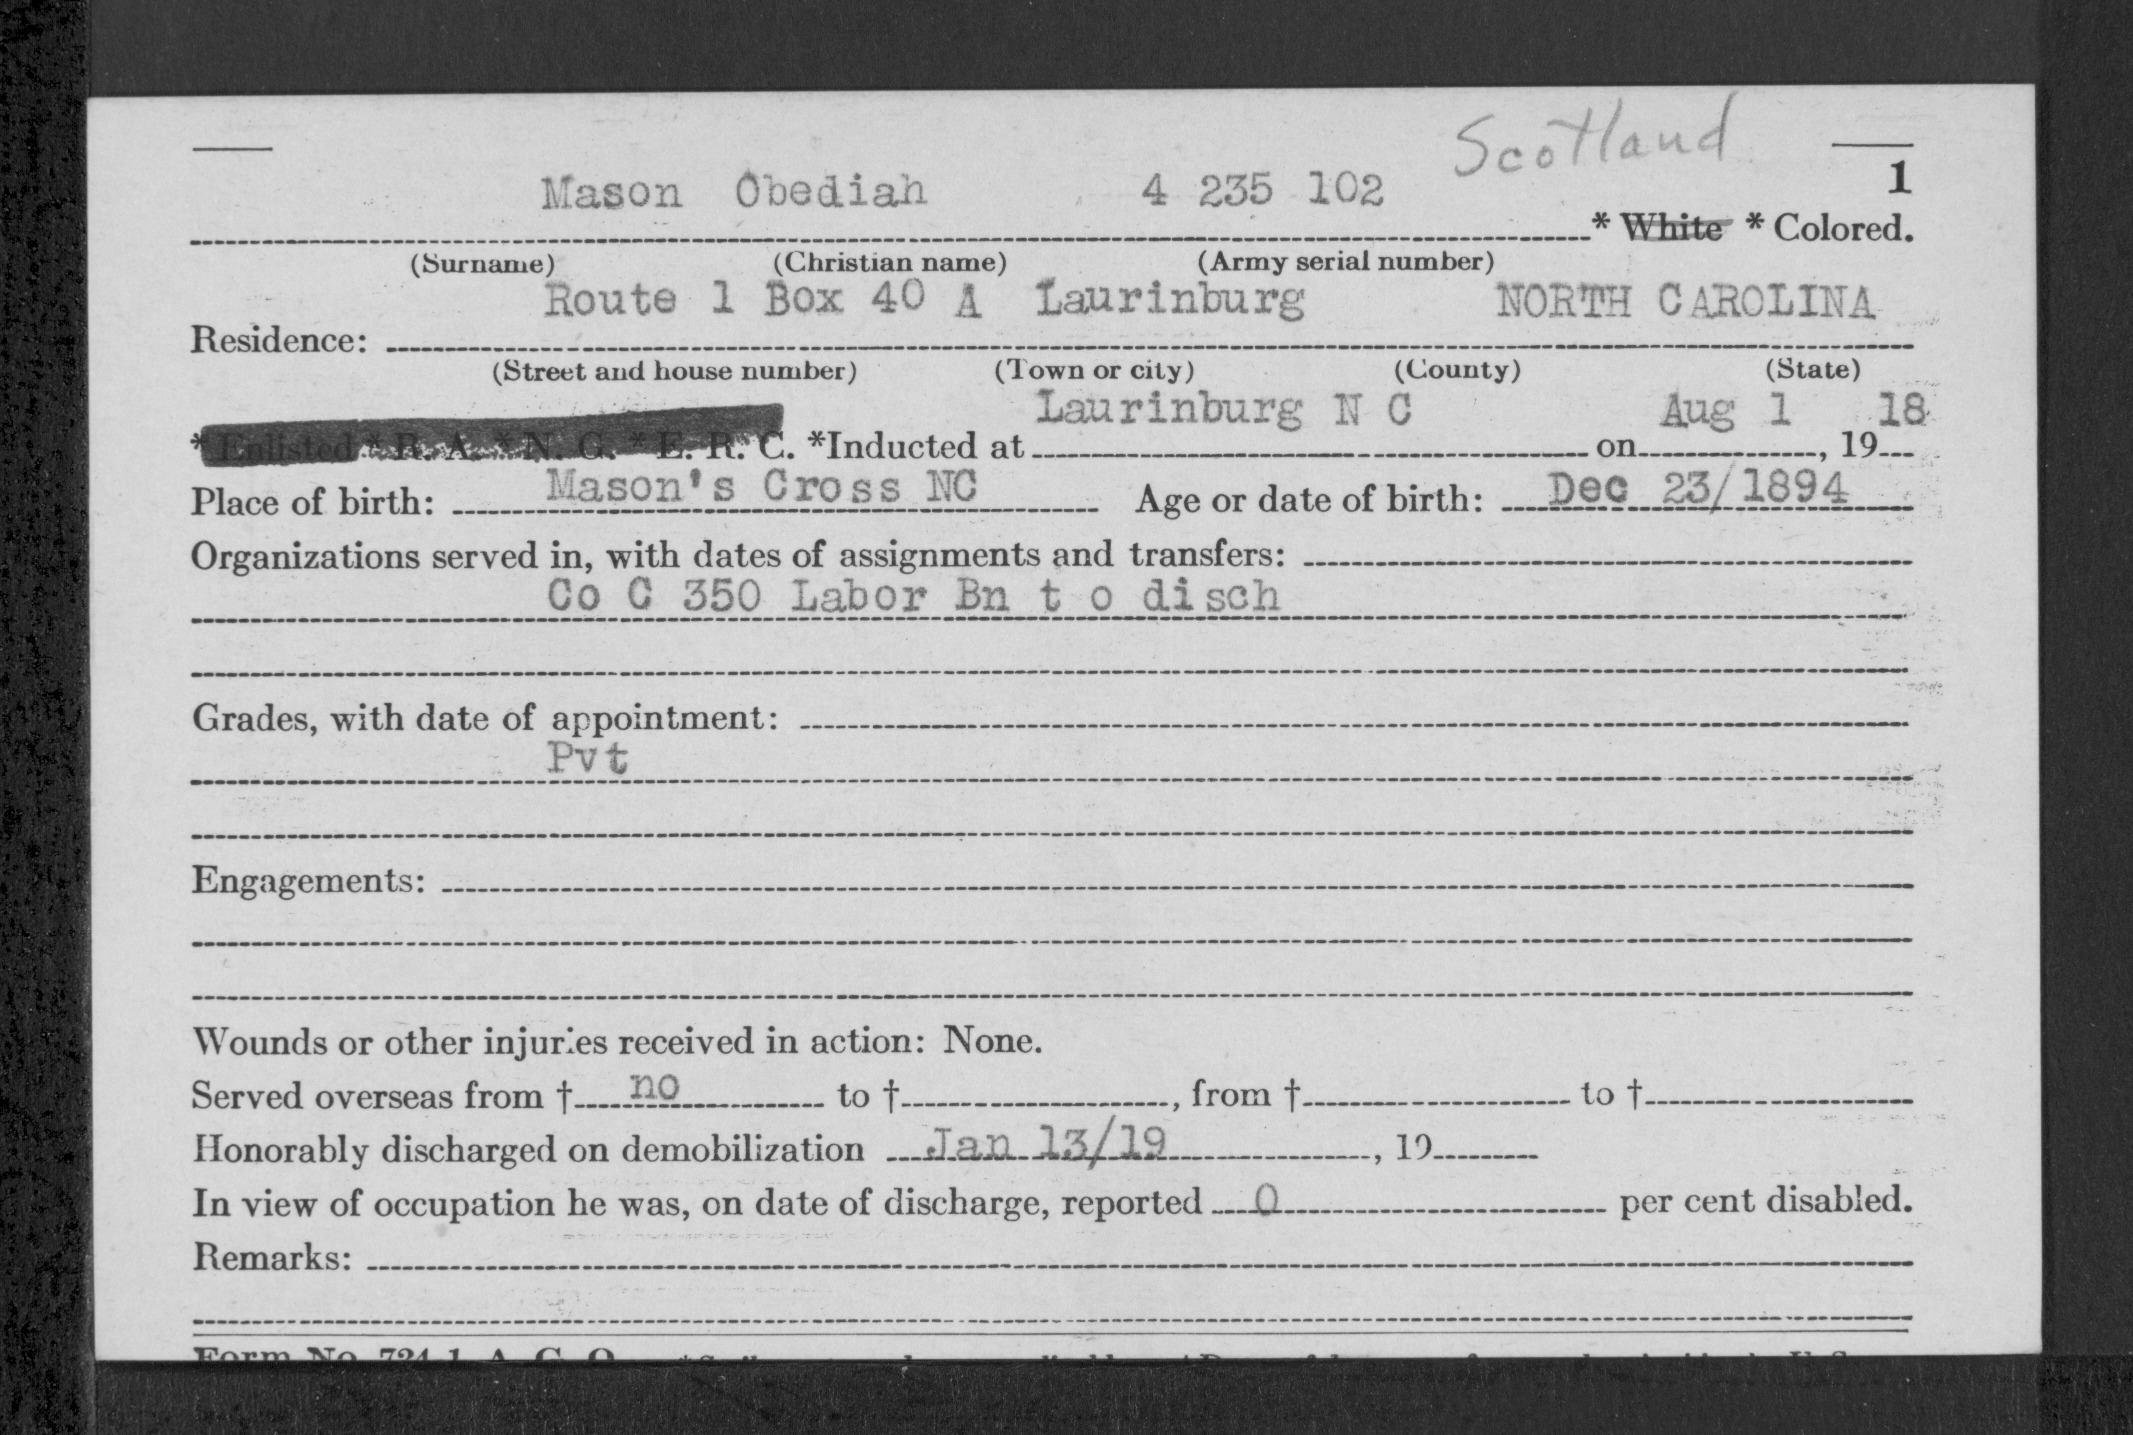 Scotland
1
Mason Obediah 4 235 102
* White * Colored.
(Surname) (Christian name) (Army serial number)
Route 1 Box 40 A Laurinburg NORTH CAROLINA
Residence:
(Street and house number) (Town or city) (County) (State)
Laurinburg N C Aug 1 18
* Enlisted * R. A. * N. G. * E. R. C. *Inducted at on , 19
Place of birth: Mason's Cross NC Age or date of birth: Dec 23/1894
Organizations served in, with dates of assignments and transfers:
Co C 350 Labor Bn t o disch
Grades, with date of appointment:
Pvt
Engagements:
Wounds or other injuries received in action: None.
Served overseas from † no to † , from † to †
Honorably discharged on demobilization Jan 13/19 , 19
In view of occupation he was, on date of discharge, reported 0 per cent disabled.
Remarks:
Form No. 724-1, A. G. O.